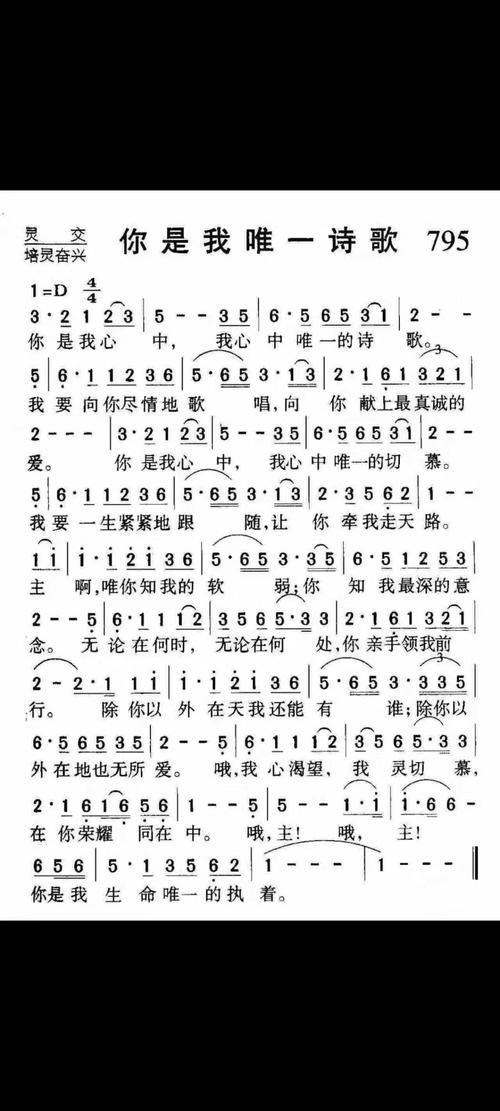 灵 交
培灵奋兴
你是我唯一诗歌 795
1=D 4/4
3·2 1 2 3 | 5 - - 3 5 | 6·5 6 5 3 1 | 2 - -
你是我心中，我心中唯一的诗歌。
5 | 6·1 1 2 3 6 | 5·6 5 3·1 3 | 2·1 6 1 3 2 1
我要向你尽情地歌唱，向你献上最真诚的
2 - - - | 3·2 1 2 3 | 5 - - 3 5 | 6·5 6 5 3 1 | 2 - -
爱。你是我心中，我心中唯一的切慕。
5 | 6·1 1 2 3 6 | 5·6 5 3·1 3 | 2·3 5 6 2 | 1 - -
我要一生紧紧地跟随，让你牵我走天路。
1 1 | 1·1 2 1 3 6 | 5·6 5 3·3 5 | 6·5 1 2 5 3
主啊，唯你知我的软弱；你知我最深的意
2 - - 5 | 6·1 1 1 2 | 3 5 6 5·3 3 | 2·1 6 1 3 2 1
念。无论在何时，无论在何处，你亲手领我前
2 - 2·1 | 1·1 2 1 3 6 | 5·6 5 3·3 3 5
行。除你以外在天我还能有谁；除你以
6·5 6 5 3 5 | 2 - - 5 | 6·1 1 1 2 | 3 5 6 5·3
外在地也无所爱。哦，我心渴望，我灵切慕，
2·1 6 1 6 5 6 | 1 - - 5 | 5 - - 1·1 | 1 - - 5
在你荣耀同在中。哦，主！哦，主！
6 5 6 | 5·1 3 5 6 2 | 1 - - - | 1 - - - ‖
你是我生命唯一的执着。